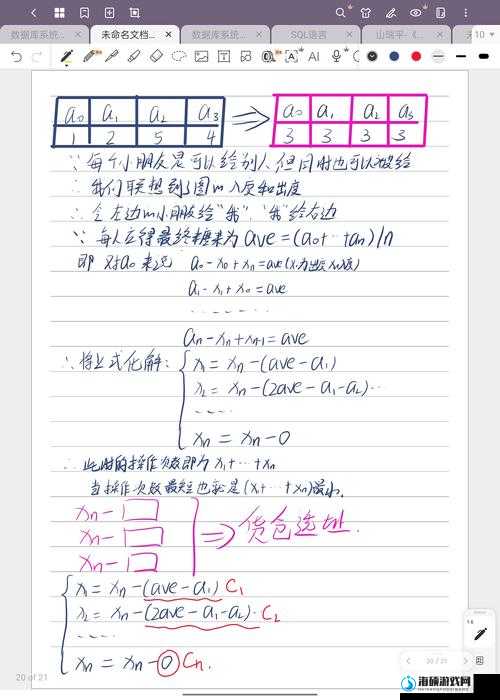 数据库系统...
未命名文档...
数据库系统...
SQL语言
山瑞平-《...
10
AI
a₀ a₁ a₂ a₃ ⇒ a₀ a₁ a₂ a₃
1 2 5 4 3 3 3 3
∵ 每个小朋友是可以给别人 但同时也可以被给
∴ 我们联想到图 入度和出度
∴ 令左边 小朋友给“我”，“我”给右边
∵ 每人应得最终糖果为 ave=(a₀+…+aₙ)/n
即 对a₀来说 a₀-x₀+xₙ=ave
a₁-x₁+x₀=ave
aₙ-xₙ+xₙ₊₁=ave
∴ 将上式化解：
x₁=xₙ-(ave-a₁)
x₂=xₙ-(2ave-a₁-a₂)…
xₙ=xₙ-0
∴ 此时的操作次数即为 x₁+…+xₙ
当操作次数最短也就是(x₁+…+xₙ)最小.
xₙ-
xₙ-
xₙ-
⇒货仓选址.
x₁=xₙ-(ave-a₁) C₁
x₂=xₙ-(2ave-a₁-a₂). C₂
xₙ=xₙ-0 Cₙ.
20 of 21
20/21
海硕游戏网